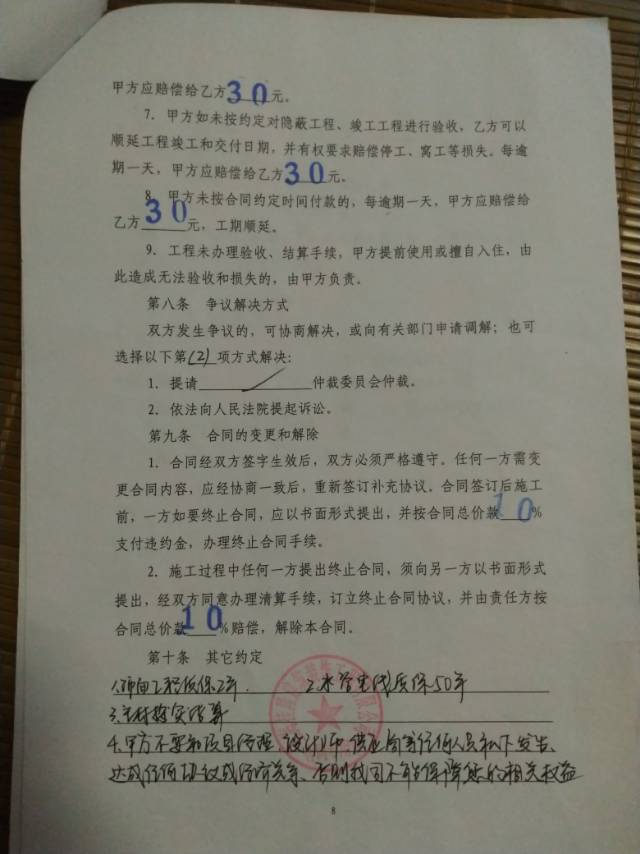 甲方应赔偿给乙方30元。
7. 甲方如未按约定对隐蔽工程、竣工工程进行验收，乙方可以
顺延工程竣工和交付日期，并有权要求赔偿停工、窝工等损失。每逾
期一天，甲方应赔偿给乙方30元。
8. 甲方未按合同约定时间付款的，每逾期一天，甲方应赔偿给
乙方30元，工期顺延。
9. 工程未办理验收、结算手续，甲方提前使用或擅自入住，由
此造成无法验收和损失的，由甲方负责。
第八条 争议解决方式
双方发生争议的，可协商解决，或向有关部门申请调解；也可
选择以下第(2)项方式解决：
1. 提请 仲裁委员会仲裁。
2. 依法向人民法院提起诉讼。
第九条 合同的变更和解除
1. 合同经双方签字生效后，双方必须严格遵守。任何一方需变
更合同内容，应经协商一致后，重新签订补充协议。合同签订后施工
前，一方如要终止合同，应以书面形式提出，并按合同总价款10%
支付违约金，办理终止合同手续。
2. 施工过程中任何一方提出终止合同，须向另一方以书面形式
提出，经双方同意办理清算手续，订立终止合同协议，并由责任方按
合同总价款10%赔偿，解除本合同。
第十条 其它约定
1. 工程质保2年. 2. 水管电线质保50年
3. 主材按实结算
4. 甲方不要和项目经理、设计师、供应商等任何人员私下发生、
达成任何协议或经济关系、否则我司不能保障您的相关权益
8